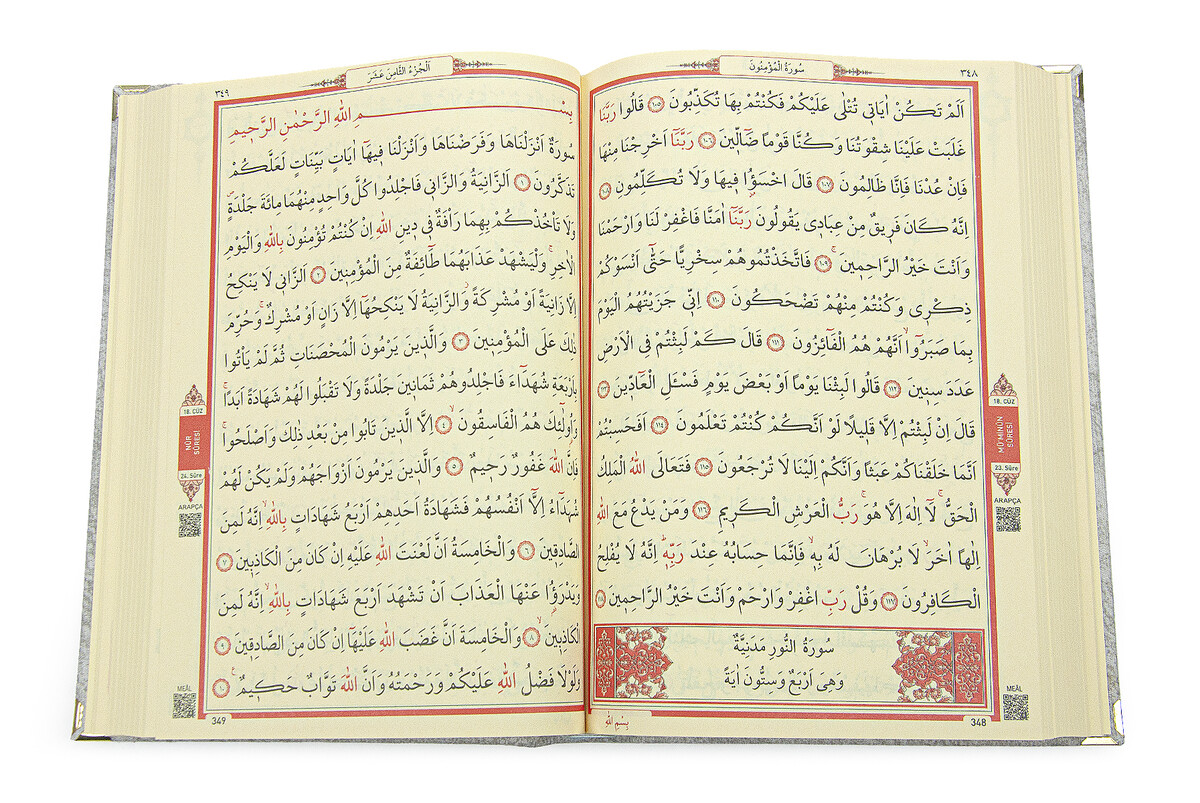 سُورَةُ الْمُؤْمِنُونَ
٣٤٨
اَلَمْ تَكُنْ اٰيَاتٖي تُتْلٰى عَلَيْكُمْ فَكُنْتُمْ بِهَا تُكَذِّبُونَ ١٠٥ قَالُوا رَبَّنَا
غَلَبَتْ عَلَيْنَا شِقْوَتُنَا وَكُنَّا قَوْمًا ضَٓالّٖينَ ١٠٦ رَبَّنَٓا اَخْرِجْنَا مِنْهَا
فَاِنْ عُدْنَا فَاِنَّا ظَالِمُونَ ١٠٧ قَالَ اخْسَؤُ۫ا فٖيهَا وَلَا تُكَلِّمُونِ ١٠٨
اِنَّهُ كَانَ فَرٖيقٌ مِنْ عِبَادٖي يَقُولُونَ رَبَّنَٓا اٰمَنَّا فَاغْفِرْ لَنَا وَارْحَمْنَا
وَاَنْتَ خَيْرُ الرَّاحِمٖينَۚ ١٠٩ فَاتَّخَذْتُمُوهُمْ سِخْرِيًّا حَتّٰٓى اَنْسَوْكُمْ
ذِكْرٖي وَكُنْتُمْ مِنْهُمْ تَضْحَكُونَ ١١٠ اِنّٖي جَزَيْتُهُمُ الْيَوْمَ
بِمَا صَبَرُٓواۙ اَنَّهُمْ هُمُ الْفَٓائِزُونَ ١١١ قَالَ كَمْ لَبِثْتُمْ فِي الْاَرْضِ
عَدَدَ سِنٖينَ ١١٢ قَالُوا لَبِثْنَا يَوْمًا اَوْ بَعْضَ يَوْمٍ فَسْـَٔلِ الْعَٓادّٖينَ ١١٣
قَالَ اِنْ لَبِثْتُمْ اِلَّا قَلٖيلًا لَوْ اَنَّكُمْ كُنْتُمْ تَعْلَمُونَ ١١٤ اَفَحَسِبْتُمْ
اَنَّمَا خَلَقْنَاكُمْ عَبَثًا وَاَنَّكُمْ اِلَيْنَا لَا تُرْجَعُونَ ١١٥ فَتَعَالَى اللّٰهُ الْمَلِكُ
الْحَقُّۚ لَٓا اِلٰهَ اِلَّا هُوَۚ رَبُّ الْعَرْشِ الْكَرٖيمِ ١١٦ وَمَنْ يَدْعُ مَعَ اللّٰهِ
اِلٰهًا اٰخَرَۙ لَا بُرْهَانَ لَهُ بِهٖۙ فَاِنَّمَا حِسَابُهُ عِنْدَ رَبِّهٖؕ اِنَّهُ لَا يُفْلِحُ
الْكَافِرُونَ ١١٧ وَقُلْ رَبِّ اغْفِرْ وَارْحَمْ وَاَنْتَ خَيْرُ الرَّاحِمٖينَ ١١٨
سُورَةُ النُّورِ مَدَنِيَّةٌ
وَهِيَ اَرْبَعٌ وَسِتُّونَ اٰيَةً
بِسْمِ اللّٰهِ
348
18. CÜZ
MÜ'MİNÛN
SÛRESİ
23. Sûre
ARAPÇA
MEÂL
اَلْجُزْءُ الثَّامِنَ عَشَرَ
٣٤٩
بِسْمِ اللّٰهِ الرَّحْمٰنِ الرَّحٖيمِ
سُورَةٌ اَنْزَلْنَاهَا وَفَرَضْنَاهَا وَاَنْزَلْنَا فٖيهَٓا اٰيَاتٍ بَيِّنَاتٍ لَعَلَّكُمْ
تَذَكَّرُونَ ١ اَلزَّانِيَةُ وَالزَّانٖي فَاجْلِدُوا كُلَّ وَاحِدٍ مِنْهُمَا مِائَةَ جَلْدَةٍࣕ
وَلَا تَأْخُذْكُمْ بِهِمَا رَأْفَةٌ فٖي دٖينِ اللّٰهِ اِنْ كُنْتُمْ تُؤْمِنُونَ بِاللّٰهِ وَالْيَوْمِ
الْاٰخِرِۚ وَلْيَشْهَدْ عَذَابَهُمَا طَٓائِفَةٌ مِنَ الْمُؤْمِنٖينَ ٢ اَلزَّانٖي لَا يَنْكِحُ
اِلَّا زَانِيَةً اَوْ مُشْرِكَةًؗ وَالزَّانِيَةُ لَا يَنْكِحُهَٓا اِلَّا زَانٍ اَوْ مُشْرِكٌۚ وَحُرِّمَ
ذٰلِكَ عَلَى الْمُؤْمِنٖينَ ٣ وَالَّذٖينَ يَرْمُونَ الْمُحْصَنَاتِ ثُمَّ لَمْ يَأْتُوا
بِاَرْبَعَةِ شُهَدَٓاءَ فَاجْلِدُوهُمْ ثَمَانٖينَ جَلْدَةً وَلَا تَقْبَلُوا لَهُمْ شَهَادَةً اَبَدًاۚ
وَاُو۬لٰٓئِكَ هُمُ الْفَاسِقُونَۙ ٤ اِلَّا الَّذٖينَ تَابُوا مِنْ بَعْدِ ذٰلِكَ وَاَصْلَحُواۚ
فَاِنَّ اللّٰهَ غَفُورٌ رَحٖيمٌ ٥ وَالَّذٖينَ يَرْمُونَ اَزْوَاجَهُمْ وَلَمْ يَكُنْ لَهُمْ
شُهَدَٓاءُ اِلَّٓا اَنْفُسُهُمْ فَشَهَادَةُ اَحَدِهِمْ اَرْبَعُ شَهَادَاتٍ بِاللّٰهِۙ اِنَّهُ لَمِنَ
الصَّادِقٖينَ ٦ وَالْخَامِسَةُ اَنَّ لَعْنَتَ اللّٰهِ عَلَيْهِ اِنْ كَانَ مِنَ الْكَاذِبٖينَ ٧
وَيَدْرَؤُ۬ا عَنْهَا الْعَذَابَ اَنْ تَشْهَدَ اَرْبَعَ شَهَادَاتٍ بِاللّٰهِۙ اِنَّهُ لَمِنَ
الْكَاذِبٖينَۙ ٨ وَالْخَامِسَةَ اَنَّ غَضَبَ اللّٰهِ عَلَيْهَٓا اِنْ كَانَ مِنَ الصَّادِقٖينَ ٩
وَلَوْلَا فَضْلُ اللّٰهِ عَلَيْكُمْ وَرَحْمَتُهُ وَاَنَّ اللّٰهَ تَوَّابٌ حَكٖيمٌۚ ١٠
349
18. CÜZ
NÛR
SÛRESİ
24. Sûre
ARAPÇA
MEÂL